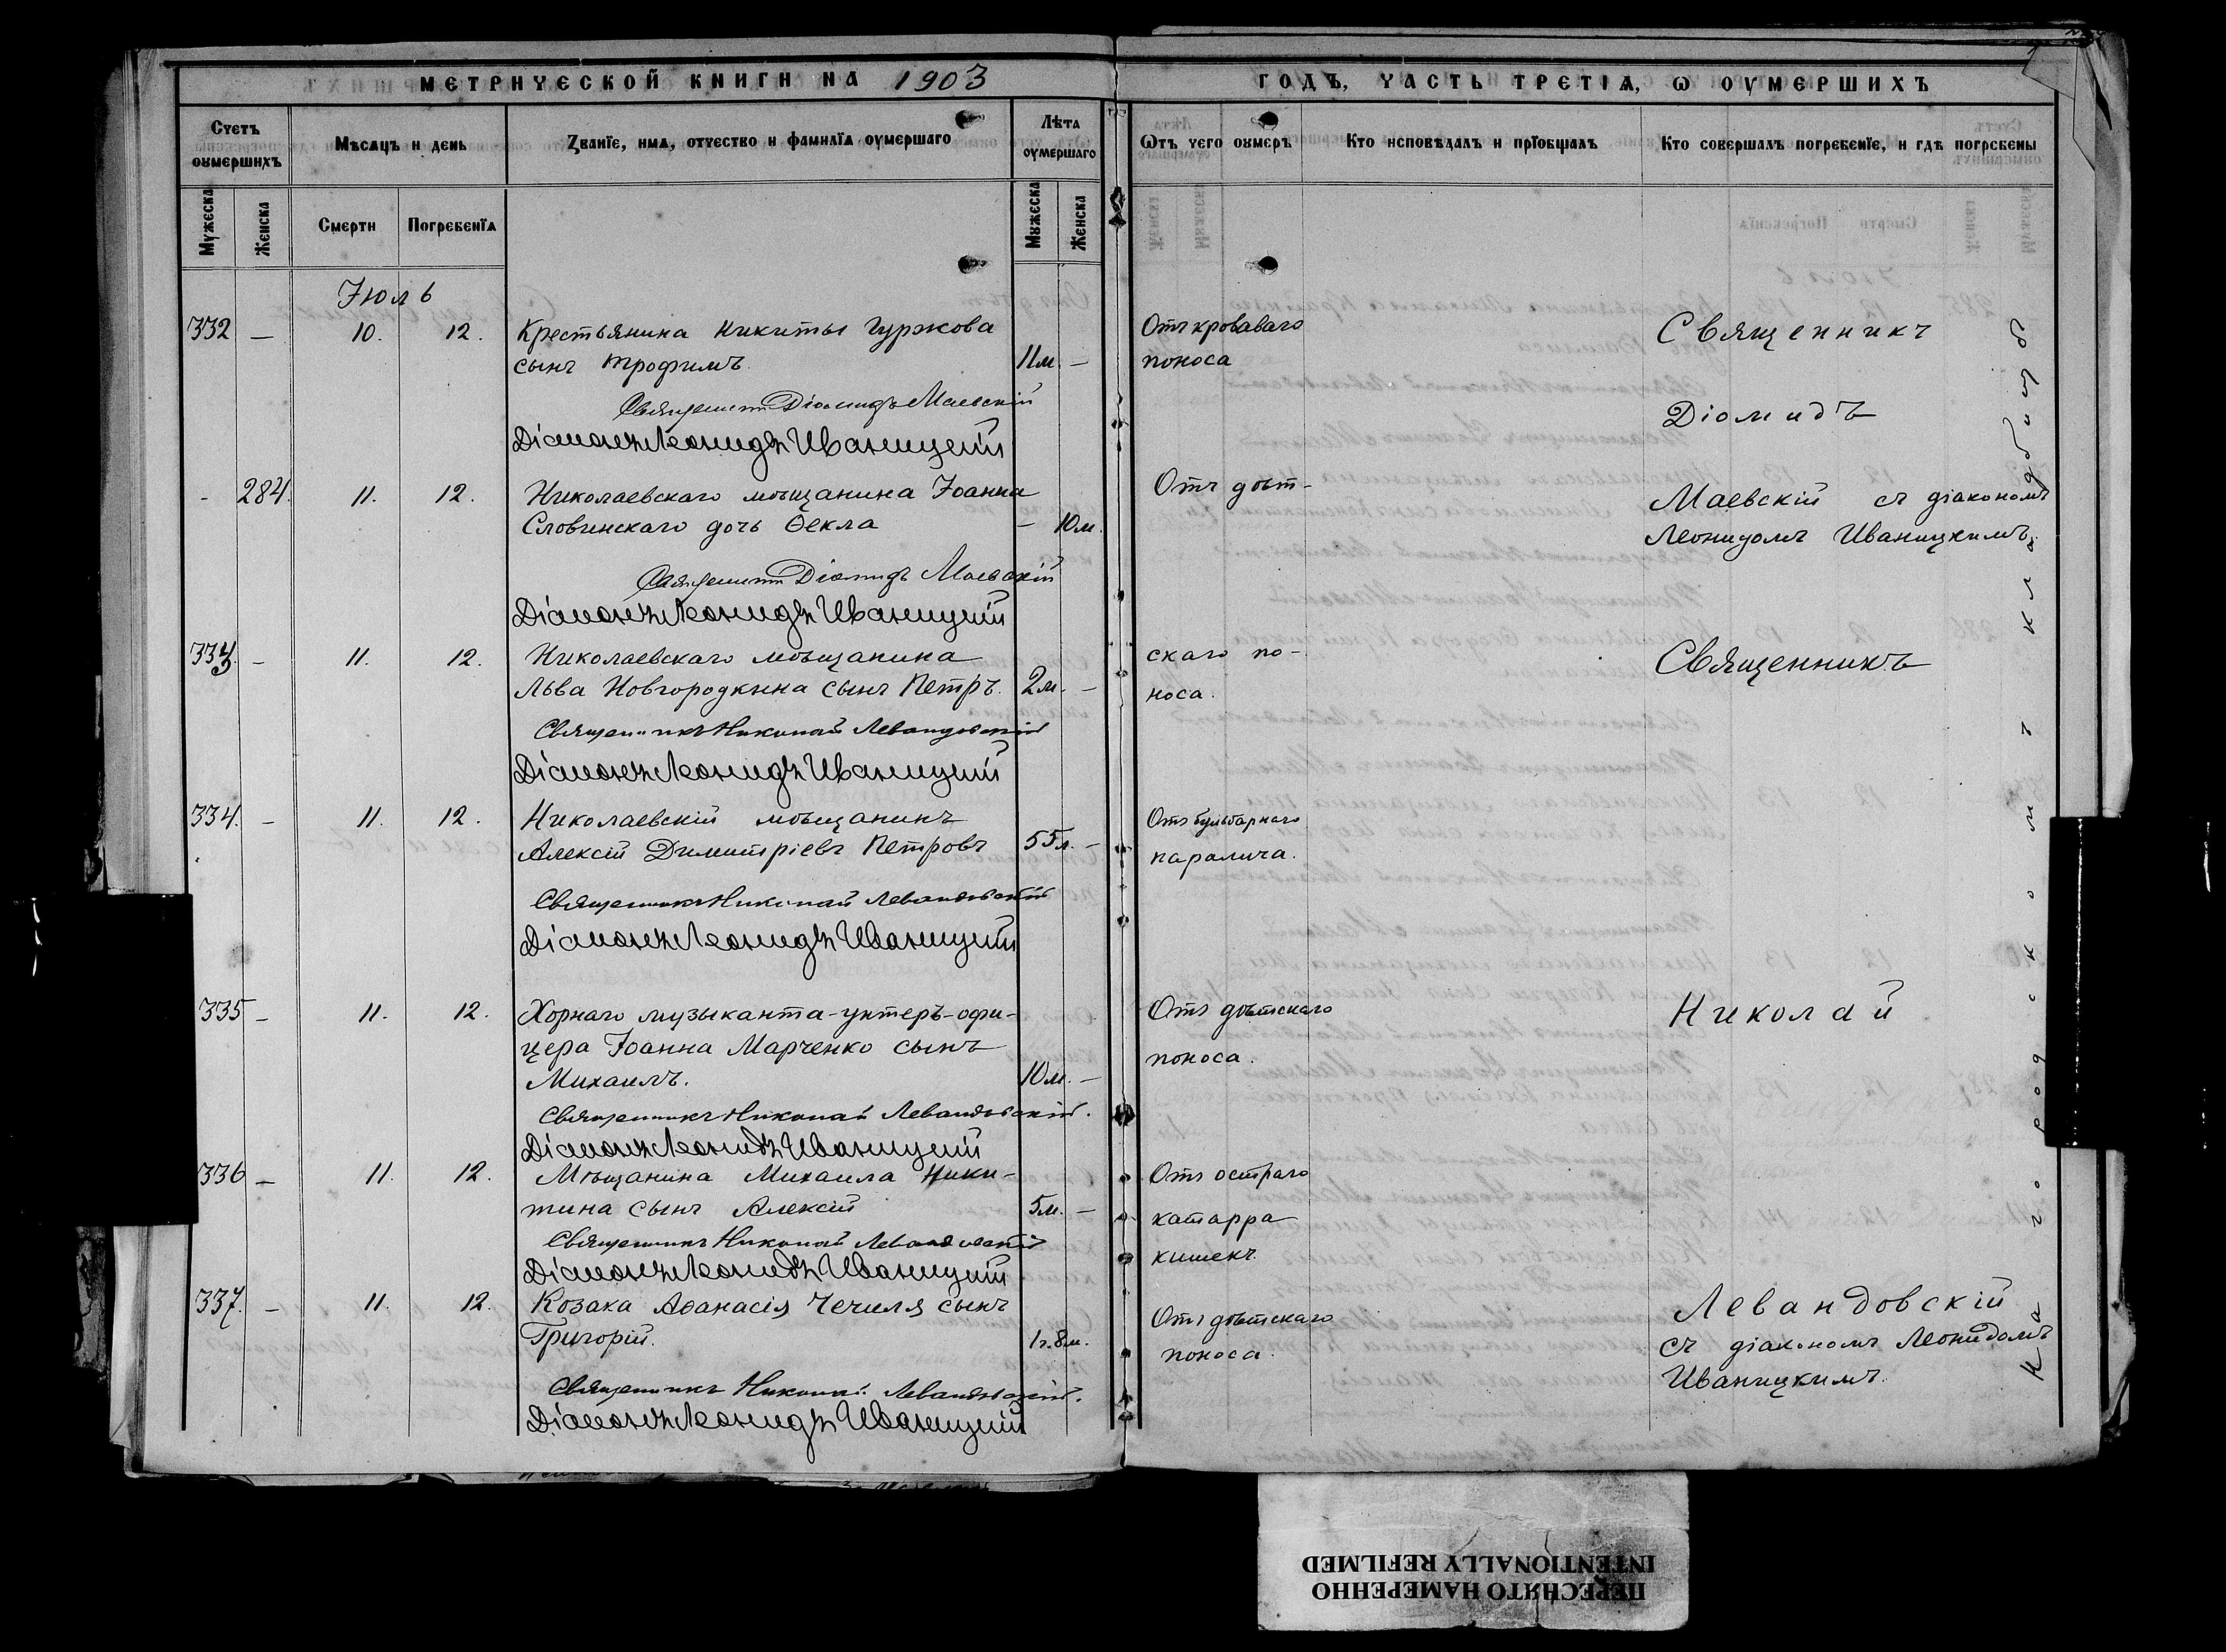 МЕТРИЧЕСКОЙ КНИГИ НА 1903
ГОДЪ, ЧАСТЬ ТРЕТІѦ, Ѡ ОУМЕРШИХЪ
Счетъ оумершихъ
Мѣсѧцъ и день
Званїе, имѧ, отчество и фамилїѧ оумершаго
Лѣта оумершаго
Ѿтъ чего оумеръ
Кто исповѣдалъ и прїобщалъ
Кто совершалъ погребенїе, и гдѣ погребены
Мужеска
Женска
Смерти
Погребенїѧ
Мужеска
Женска
Іюль
332 — 10. 12. Крестьянина Никиты Гуржова
сынъ Трофимъ. 11м. —
Отъ кроваваго
поноса
Священникъ Діомидъ Маевскій
Діаконъ Леонидъ Иваницкій
- 284. 11. 12. Николаевскаго мѣщанина Іоанна
Словинскаго дочь Ѳекла — 10м.
Отъ дѣт-
Священникъ Діомидъ Маевскій
Діаконъ Леонидъ Иваницкій
333. — 11. 12. Николаевскаго мѣщанина
Льва Новгородкина сынъ Петръ. 2м. —
скаго по-
носа.
Священникъ Николай Левандовскій
Діаконъ Леонидъ Иваницкій
334. — 11. 12. Николаевскій мѣщанинъ
Алексій Димитріевъ Петровъ 55л. —
Отъ бульбарнаго
паралича.
Священникъ Николай Левандовскій
Діаконъ Леонидъ Иваницкій
335 — 11. 12. Хорнаго музыканта-унтеръ-офи-
цера Іоанна Марченко сынъ
Михаилъ. 10м. —
Отъ дѣтскаго
поноса.
Священникъ Николай Левандовскій.
Діаконъ Леонидъ Иваницкій
336 — 11. 12. Мѣщанина Михаила Ники-
тина сынъ Алексій 5м. —
Отъ остраго
катарра
кишекъ.
Священникъ Николай Левандовскій
Діаконъ Леонидъ Иваницкій
337. — 11. 12. Козака Аѳанасія Чечиля сынъ
Григорій. 1г.8м.
Отъ дѣтскаго
поноса.
Священникъ Николай Левандовскій.
Діаконъ Леонидъ Иваницкій
Священникъ
Діомидъ
Маевскій съ діакономъ
Леонидомъ Иваницкимъ.
Священникъ
Николай
Левандовскій
съ діакономъ Леонидомъ
Иваницкимъ.
На городскомъ кладбищѣ
ПЕРЕСНЯТО НАМЕРЕННО
INTENTIONALLY REFILMED